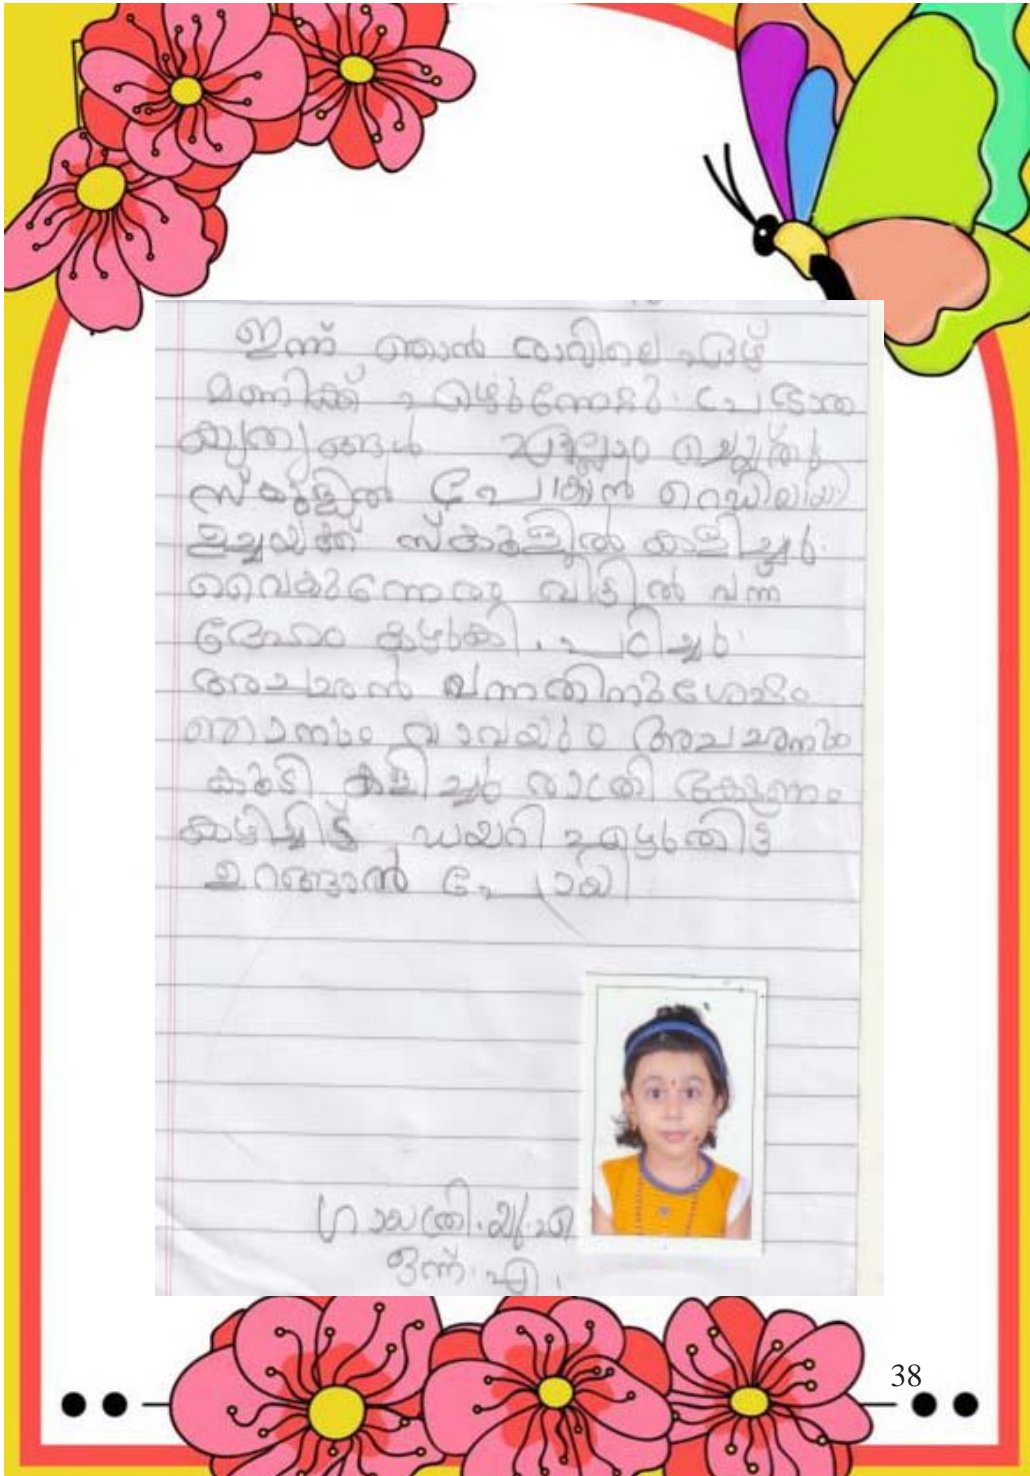 ഇന്ന് ഞാൻ രാവിലെ ഏഴ്
മണിക്ക് എഴുന്നേറ്റു. പ്രഭാത
കൃത്യങ്ങൾ എല്ലാം ചെയ്തു
സ്കൂളിൽ പോകാൻ റെഡിയായി
ഉച്ചയ്ക്ക് സ്കൂളിൽ കളിച്ചു.
വൈകുന്നേരം വീട്ടിൽ വന്ന്
ദേഹം കഴുകി. പഠിച്ചു.
അച്ഛൻ വന്നതിനുശേഷം
ഞാനും വാവയും അച്ഛനും
കൂടി കളിച്ചു രാത്രി ഭക്ഷണം
കഴിച്ചിട്ട് ഡയറി എഴുതിട്ട്
ഉറങ്ങാൻ പോയി
ഗായത്രി.
ഒന്ന്. എ.
38